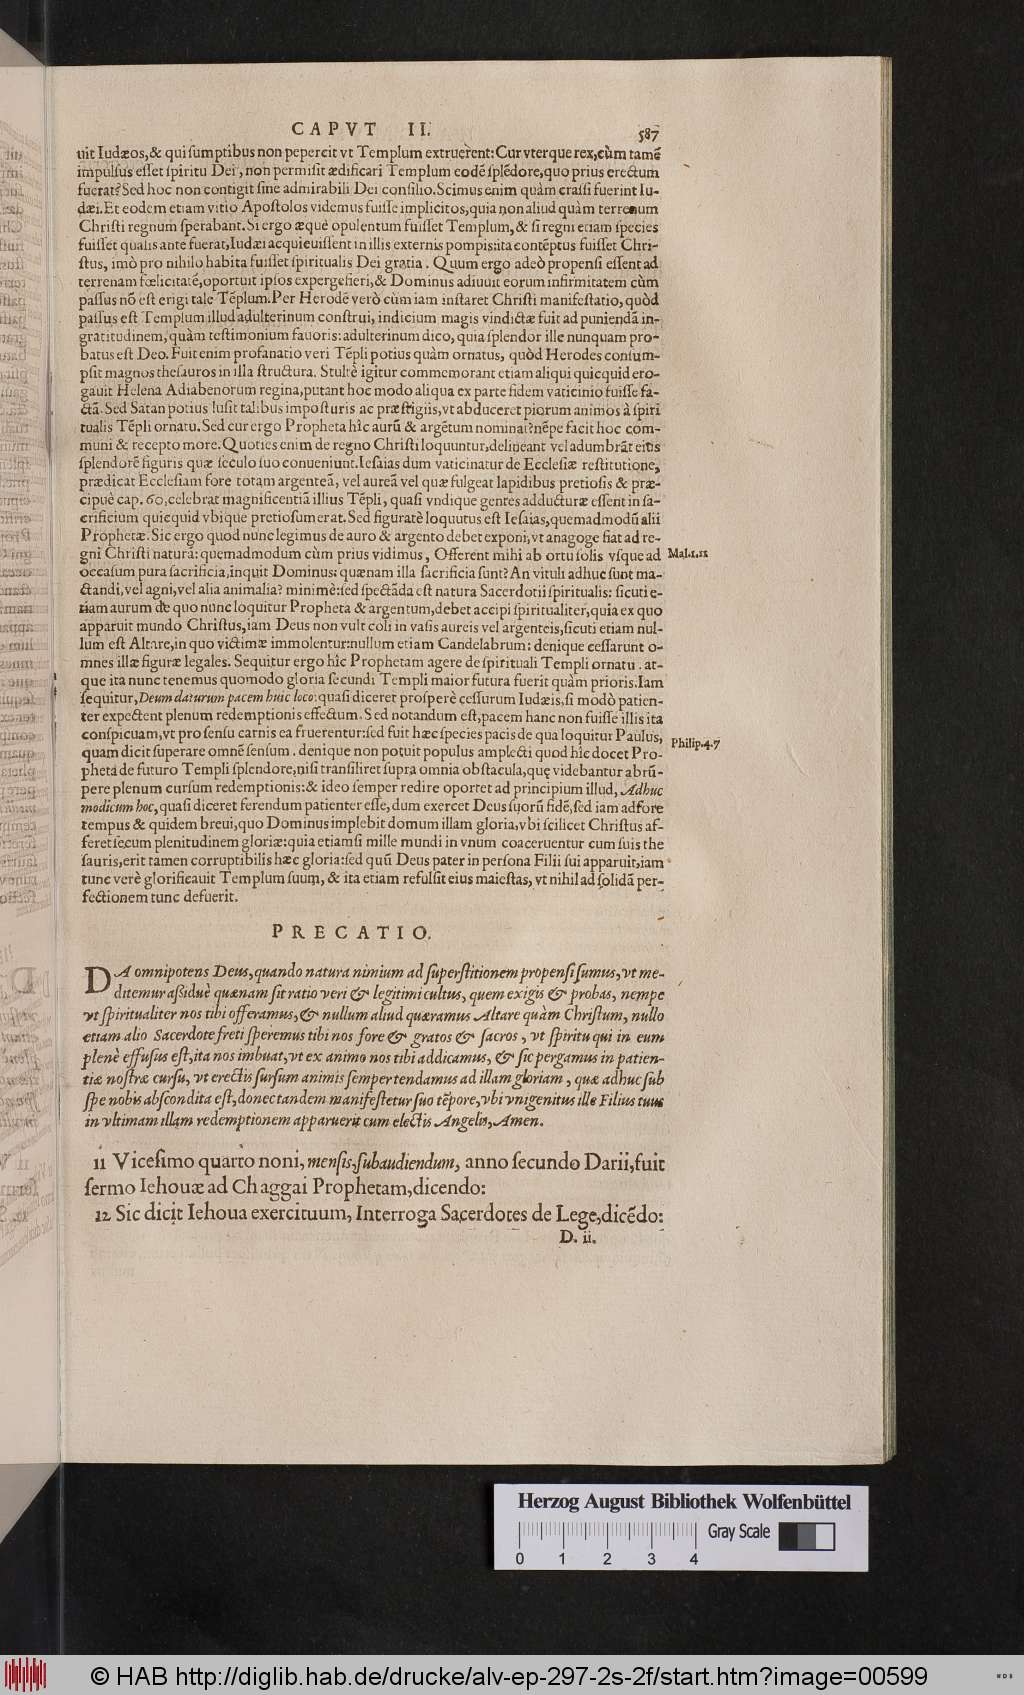 CAPVT II. 587
uit Iudæos, & qui sumptibus non pepercit vt Templum extruerent: Cur vterque rex, cùm tamē
impulsus esset spiritu Dei, non permisit ædificari Templum eodē splēdore, quo prius erectum
fuerat? Sed hoc non contigit sine admirabili Dei consilio. Scimus enim quàm crassi fuerint Iu-
dæi. Et eodem etiam vitio Apostolos videmus fuisse implicitos, quia non aliud quàm terrenum
Christi regnum sperabant. Si ergo æquè opulentum fuisset Templum, & si regni etiam species
fuisset qualis ante fuerat, Iudæi acquieuissent in illis externis pompis: ita contēptus fuisset Chri-
stus, imò pro nihilo habita fuisset spiritualis Dei gratia. Quum ergo adeò propensi essent ad
terrenam fœlicitatē, oportuit ipsos expergefieri, & Dominus adiuuit eorum infirmitatem cùm
passus nō est erigi tale Tēplum. Per Herodē verò cùm iam instaret Christi manifestatio, quòd
passus est Templum illud adulterinum construi, indicium magis vindictæ fuit ad puniendā in-
gratitudinem, quàm testimonium fauoris: adulterinum dico, quia splendor ille nunquam pro-
batus est Deo. Fuit enim profanatio veri Tēpli potius quàm ornatus, quòd Herodes consum-
psit magnos thesauros in illa structura. Stultè igitur commemorant etiam aliqui quicquid ero-
gauit Helena Adiabenorum regina, putant hoc modo aliqua ex parte fidem vaticinio fuisse fa-
ctā. Sed Satan potius lusit talibus imposturis ac præstigiis, vt abduceret piorum animos à spiri
tualis Tēpli ornatu. Sed cur ergo Propheta hîc aurū & argētum nominat? nēpe facit hoc com-
muni & recepto more. Quoties enim de regno Christi loquuntur, delineant vel adumbrāt eius
splendorē figuris quæ seculo suo conueniunt. Iesaias dum vaticinatur de Ecclesiæ restitutione,
prædicat Ecclesiam fore totam argenteā, vel aureā vel quæ fulgeat lapidibus pretiosis & præ-
cipuè cap. 60, celebrat magnificentiā illius Tēpli, quasi vndique gentes adducturæ essent in sa-
crificium quicquid vbique pretiosum erat. Sed figuratè loquutus est Iesaias, quemadmodū alii
Prophetæ. Sic ergo quod nunc legimus de auro & argento debet exponi, vt anagoge fiat ad re-
gni Christi natura: quemadmodum cùm prius vidimus, Offerent mihi ab ortu solis vsque ad
Mal.1.11
occasum pura sacrificia, inquit Dominus: quænam illa sacrificia sunt? An vituli adhuc sunt ma-
ctandi, vel agni, vel alia animalia? minimè: sed spectāda est natura Sacerdotii spiritualis: sicuti e-
tiam aurum de quo nunc loquitur Propheta & argentum, debet accipi spiritualiter, quia ex quo
apparuit mundo Christus, iam Deus non vult coli in vasis aureis vel argenteis, sicuti etiam nul-
lum est Altare, in quo victimæ immolentur: nullum etiam Candelabrum: denique cessarunt o-
mnes illæ figuræ legales. Sequitur ergo hîc Prophetam agere de spirituali Templi ornatu. at-
que ita nunc tenemus quomodo gloria secundi Templi maior futura fuerit quàm prioris. Iam
sequitur, Deum daturum pacem huic loco: quasi diceret prosperè cessurum Iudæis, si modò patien-
ter expectent plenum redemptionis effectum. Sed notandum est, pacem hanc non fuisse illis ita
conspicuam, vt pro sensu carnis ea fruerentur: sed fuit hæc species pacis de qua loquitur Paulus,
Philip.4.7
quam dicit superare omnē sensum. denique non potuit populus amplecti quod hîc docet Pro-
pheta de futuro Templi splendore, nisi transiliret supra omnia obstacula, quę videbantur abrū-
pere plenum cursum redemptionis: & ideo semper redire oportet ad principium illud, Adhuc
modicum hoc, quasi diceret ferendum patienter esse, dum exercet Deus suorū fidē, sed iam adfore
tempus & quidem breui, quo Dominus implebit domum illam gloria, vbi scilicet Christus af-
feret secum plenitudinem gloriæ: quia etiamsi mille mundi in vnum coaceruentur cum suis the
sauris, erit tamen corruptibilis hæc gloria: sed quū Deus pater in persona Filii sui apparuit, iam
tunc verè glorificauit Templum suum, & ita etiam refulsit eius maiestas, vt nihil ad solidā per-
fectionem tunc defuerit.
PRECATIO.
DA omnipotens Deus, quando natura nimium ad superstitionem propensi sumus, vt me-
ditemur assiduè quænam sit ratio veri & legitimi cultus, quem exigis & probas, nempe
vt spiritualiter nos tibi offeramus, & nullum aliud quæramus Altare quàm Christum, nullo
etiam alio Sacerdote freti speremus tibi nos fore & gratos & sacros, vt spiritu qui in eum
plenè effusus est, ita nos imbuat, vt ex animo nos tibi addicamus, & sic pergamus in patien-
tiæ nostræ cursu, vt erectis sursum animis semper tendamus ad illam gloriam, quæ adhuc sub
spe nobis abscondita est, donec tandem manifestetur suo tēpore, vbi vnigenitus ille Filius tuus
in vltimam illam redemptionem apparuerit cum electis Angelis, Amen.
11 Vicesimo quarto noni, mensis, subaudiendum, anno secundo Darii, fuit
sermo Iehouæ ad Chaggai Prophetam, dicendo:
12 Sic dicit Iehoua exercituum, Interroga Sacerdotes de Lege, dicēdo:
D. ii.
Herzog August Bibliothek Wolfenbüttel
Gray Scale
0 1 2 3 4
© HAB http://diglib.hab.de/drucke/alv-ep-297-2s-2f/start.htm?image=00599